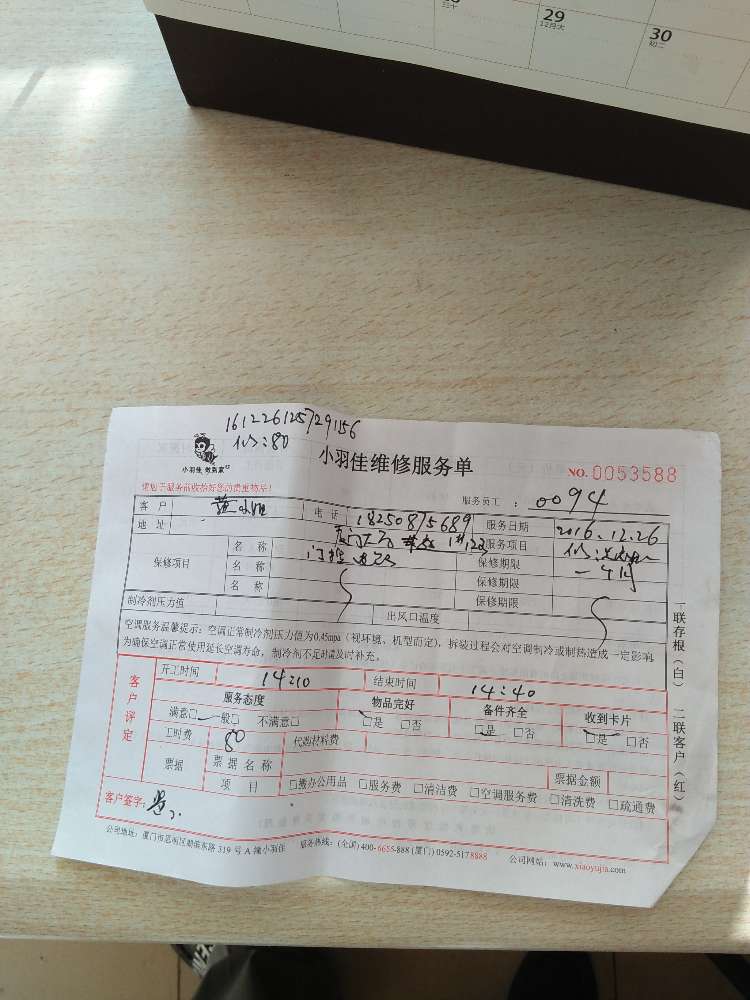 29
30
初二
161226125729156
小羽佳维修服务单
NO. 0053588
小羽佳 做到家
服务员工： 0094
客户 电话 18250875689 服务日期 2016.12.26
地址 服务项目
保修项目 名称 保修期限 一个月
名称 保修期限
名称 保修期限
制冷剂压力值 出风口温度
空调服务温馨提示：空调正常制冷剂压力值为0.45mpa（视环境、机型而定），拆装过程会对空调制冷或制热造成一定影响
为确保空调正常使用延长空调寿命，制冷剂不足时请及时补充。
客户评定
开工时间 14:10 结束时间 14:40
服务态度 物品完好 备件齐全 收到卡片
满意□ 一般□ 不满意□ □是 □否 □是 □否 □是 □否
工时费 80 代购材料费
票据 票据名称 票据金额
项目 □搬办公用品 □服务费 □清洁费 □空调服务费 □清洗费 □疏通费
客户签字：
公司地址：厦门市思明区 东路319号A幢小羽佳 服务热线：(全国)400-6655-888 (厦门) 0592-5178888 公司网站：www.xiaoyujia.com
一联存根（白） 二联客户（红）